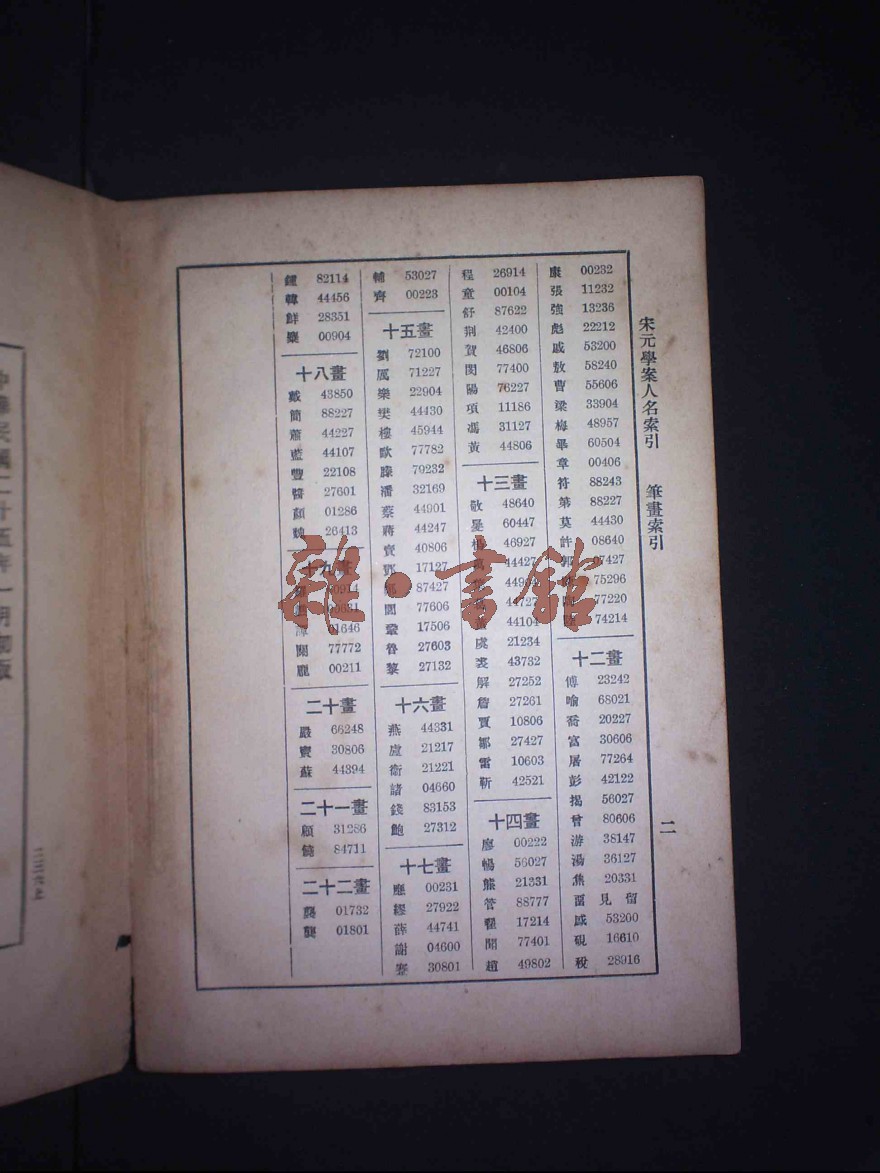 宋元學案人名索引 筆畫索引
二
康 00232
張 11232
強 13236
彪 22212
戚 53200
敖 58240
曹 55606
梁 33904
梅 48957
畢 60504
章 00406
符 88243
第 88227
莫 44430
許 08640
郭 07427
75296
77220
74214
十二畫
傅 23242
喻 68021
喬 20227
富 30606
屠 77264
彭 42122
揭 56027
曾 80606
游 38147
湯 36127
焦 20331
畱 見 留
戚 53200
硯 16610
稅 28916
程 26914
童 00104
舒 87622
荆 42400
賀 46806
閔 77400
陽 76227
項 11186
馮 31127
黃 44806
十三畫
敬 48640
晁 60447
楊 46927
44427
44904
44727
44104
虞 21234
裘 43732
解 27252
詹 27261
賈 10806
鄒 27427
雷 10603
靳 42521
十四畫
廖 00222
暢 56027
熊 21331
管 88777
翟 17214
聞 77401
趙 49802
輔 53027
齊 00223
十五畫
劉 72100
厲 71227
樂 22904
樊 44430
樓 45944
歐 77782
滕 79232
潘 32169
蔡 44901
蔣 44247
竇 40806
鄧 17127
鄭 87427
閭 77606
鞏 17506
魯 27603
黎 27132
十六畫
燕 44331
盧 21217
衛 21221
諸 04660
錢 83153
鮑 27312
十七畫
應 00231
繆 27922
薛 44741
謝 04600
蹇 30801
鍾 82114
韓 44456
鮮 28351
麋 00904
十八畫
戴 43850
簡 88227
蕭 44227
藍 44107
豐 22108
醫 27601
顏 01286
魏 26413
十九畫
60914
00631
譚 01646
關 77772
龐 00211
二十畫
嚴 66248
竇 30806
蘇 44394
二十一畫
顧 31286
饒 84711
二十二畫
龔 01732
龔 01801
雜·書館